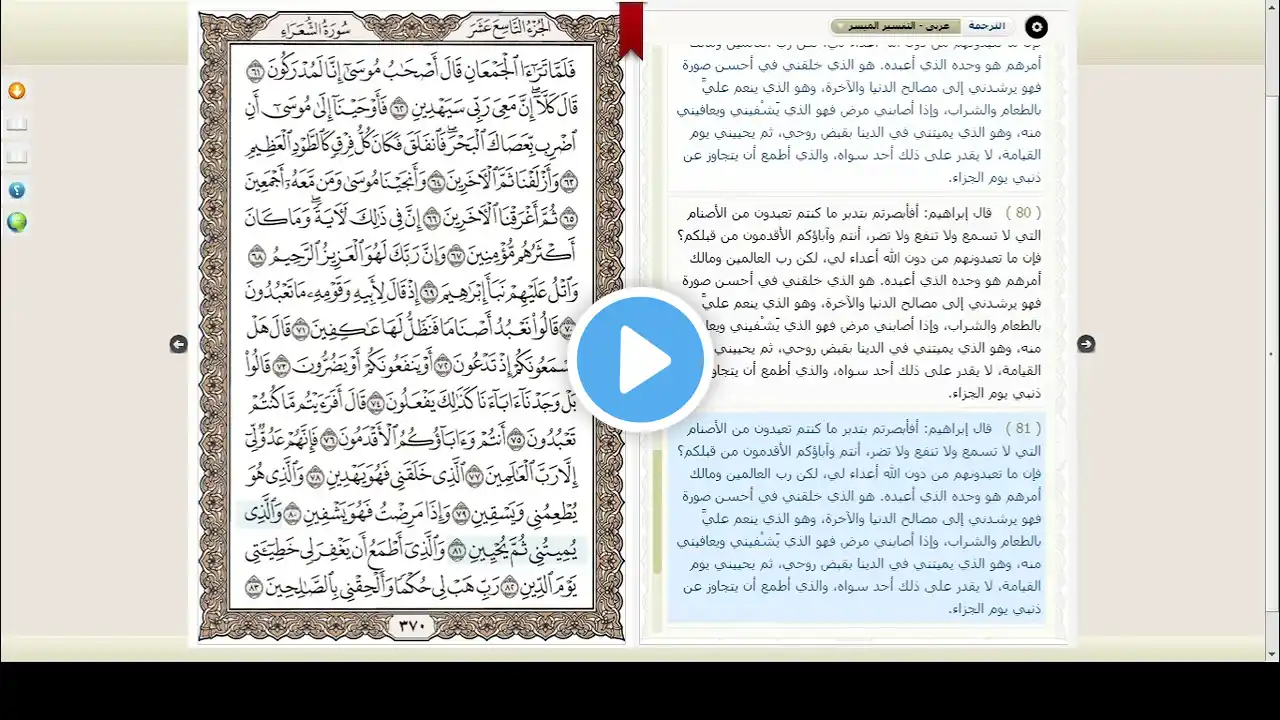 الجُزْءُ التَّاسِعَ عَشَرَ
سُورَةُ الشُّعَرَاءِ
فَلَمَّا تَرَٰٓءَا ٱلْجَمْعَانِ قَالَ أَصْحَٰبُ مُوسَىٰٓ إِنَّا لَمُدْرَكُونَ ٦١
قَالَ كَلَّآ إِنَّ مَعِىَ رَبِّى سَيَهْدِينِ ٦٢ فَأَوْحَيْنَآ إِلَىٰ مُوسَىٰٓ أَنِ
ٱضْرِب بِّعَصَاكَ ٱلْبَحْرَ فَٱنفَلَقَ فَكَانَ كُلُّ فِرْقٍ كَٱلطَّوْدِ ٱلْعَظِيمِ
٦٣ وَأَزْلَفْنَا ثَمَّ ٱلْءَاخَرِينَ ٦٤ وَأَنجَيْنَا مُوسَىٰ وَمَن مَّعَهُۥٓ أَجْمَعِينَ
٦٥ ثُمَّ أَغْرَقْنَا ٱلْءَاخَرِينَ ٦٦ إِنَّ فِى ذَٰلِكَ لَءَايَةً وَمَا كَانَ
أَكْثَرُهُم مُّؤْمِنِينَ ٦٧ وَإِنَّ رَبَّكَ لَهُوَ ٱلْعَزِيزُ ٱلرَّحِيمُ ٦٨
وَٱتْلُ عَلَيْهِمْ نَبَأَ إِبْرَٰهِيمَ ٦٩ إِذْ قَالَ لِأَبِيهِ وَقَوْمِهِۦ مَا تَعْبُدُونَ
٧٠ قَالُوا۟ نَعْبُدُ أَصْنَامًا فَنَظَلُّ لَهَا عَٰكِفِينَ ٧١ قَالَ هَلْ
يَسْمَعُونَكُمْ إِذْ تَدْعُونَ ٧٢ أَوْ يَنفَعُونَكُمْ أَوْ يَضُرُّونَ ٧٣ قَالُوا۟
بَلْ وَجَدْنَآ ءَابَآءَنَا كَذَٰلِكَ يَفْعَلُونَ ٧٤ قَالَ أَفَرَءَيْتُم مَّا كُنتُمْ
تَعْبُدُونَ ٧٥ أَنتُمْ وَءَابَآؤُكُمُ ٱلْأَقْدَمُونَ ٧٦ فَإِنَّهُمْ عَدُوٌّ لِّىٓ
إِلَّا رَبَّ ٱلْعَٰلَمِينَ ٧٧ ٱلَّذِى خَلَقَنِى فَهُوَ يَهْدِينِ ٧٨ وَٱلَّذِى هُوَ
يُطْعِمُنِى وَيَسْقِينِ ٧٩ وَإِذَا مَرِضْتُ فَهُوَ يَشْفِينِ ٨٠ وَٱلَّذِى
يُمِيتُنِى ثُمَّ يُحْيِينِ ٨١ وَٱلَّذِىٓ أَطْمَعُ أَن يَغْفِرَ لِى خَطِيٓـَٔتِى
يَوْمَ ٱلدِّينِ ٨٢ رَبِّ هَبْ لِى حُكْمًا وَأَلْحِقْنِى بِٱلصَّٰلِحِينَ ٨٣
٣٧٠
الترجمة
عربى - التفسير الميسر
فإن ما تعبدونهم من دون الله أعداء لي، لكن رب العالمين ومالك
أمرهم هو وحده الذي أعبده. هو الذي خلقني في أحسن صورة
فهو يرشدني إلى مصالح الدنيا والآخرة، وهو الذي ينعم عليَّ
بالطعام والشراب، وإذا أصابني مرض فهو الذي يَشْفيني ويعافيني
منه، وهو الذي يميتني في الدينا بقبض روحي، ثم يحييني يوم
القيامة، لا يقدر على ذلك أحد سواه، والذي أطمع أن يتجاوز عن
ذنبي يوم الجزاء.
( 80 ) قال إبراهيم: أفأبصرتم بتدبر ما كنتم تعبدون من الأصنام
التي لا تسمع ولا تنفع ولا تضر، أنتم وآباؤكم الأقدمون من قبلكم؟
فإن ما تعبدونهم من دون الله أعداء لي، لكن رب العالمين ومالك
أمرهم هو وحده الذي أعبده. هو الذي خلقني في أحسن صورة
فهو يرشدني إلى مصالح الدنيا والآخرة، وهو الذي ينعم عليَّ
بالطعام والشراب، وإذا أصابني مرض فهو الذي يَشْفيني
منه، وهو الذي يميتني في الدينا بقبض روحي، ثم يحييني
القيامة، لا يقدر على ذلك أحد سواه، والذي أطمع أن يتجاوز
ذنبي يوم الجزاء.
( 81 ) قال إبراهيم: أفأبصرتم بتدبر ما كنتم تعبدون من الأصنام
التي لا تسمع ولا تنفع ولا تضر، أنتم وآباؤكم الأقدمون من قبلكم؟
فإن ما تعبدونهم من دون الله أعداء لي، لكن رب العالمين ومالك
أمرهم هو وحده الذي أعبده. هو الذي خلقني في أحسن صورة
فهو يرشدني إلى مصالح الدنيا والآخرة، وهو الذي ينعم عليَّ
بالطعام والشراب، وإذا أصابني مرض فهو الذي يَشْفيني ويعافيني
منه، وهو الذي يميتني في الدينا بقبض روحي، ثم يحييني يوم
القيامة، لا يقدر على ذلك أحد سواه، والذي أطمع أن يتجاوز عن
ذنبي يوم الجزاء.